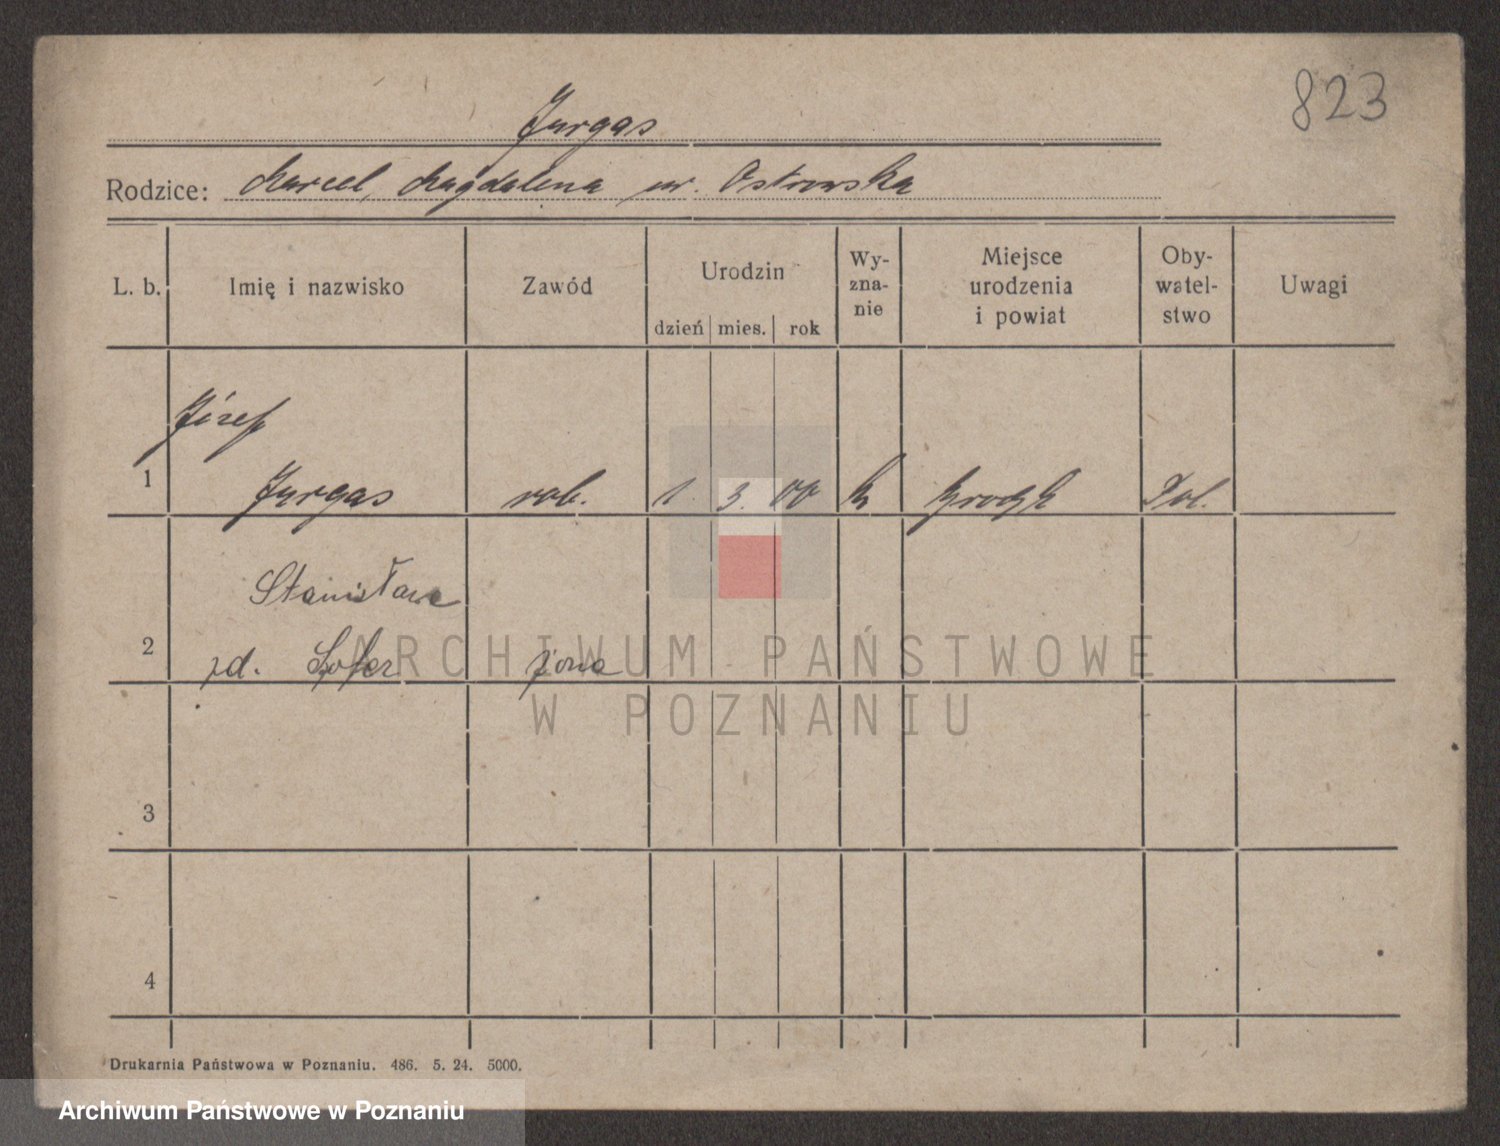 823
Jurgas
Rodzice: Marcel, Magdalena ur. Ostrowska
L. b.
Imię i nazwisko
Zawód
Urodzin
dzień mies. rok
Wy-
zna-
nie
Miejsce
urodzenia
i powiat
Oby-
watel-
stwo
Uwagi
Józef
1 Jurgas rob. 1 3. 00 k Pol.
Stanisława
2 zd. żona
3
4
ARCHIWUM PAŃSTWOWE
W POZNANIU
Drukarnia Państwowa w Poznaniu. 486. 5. 24. 5000.
Archiwum Państwowe w Poznaniu